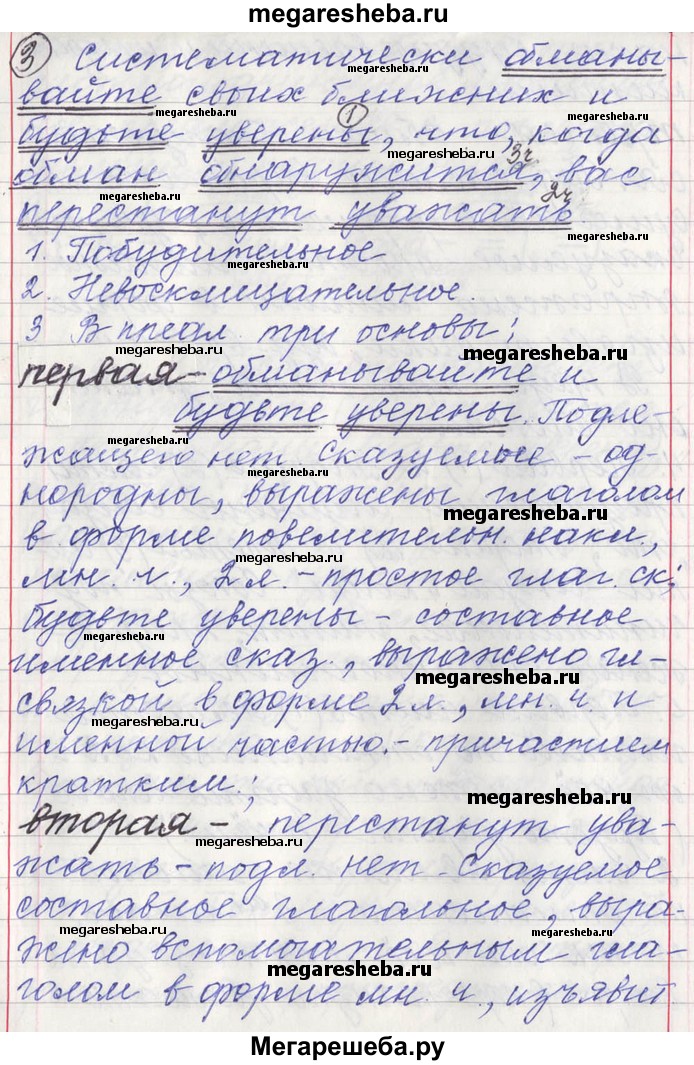 megaresheba.ru
③ Систематически обманы-
вайте своих ближних и
будьте уверены, что, когда
1
обман обнаружится, вас
3ч
перестанут уважать.
2ч
1. Побудительное
2. Невосклицательное.
3 В предл. три основы:
первая - обманывайте и
будьте уверены. Подле-
жащего нет. Сказуемые - од-
нородны, выражены глаголом
в форме повелительн. накл.,
мн. ч., 2 л. - простое глаг. ск;
будьте уверены - составное
именное сказ., выражено гл-
связкой в форме 2 л., мн. ч. и
именной частью. - причастием
кратким.;
вторая - перестанут ува-
жать - подл. нет. Сказуемое
составное глагольное, выра-
жено вспомогательным гла-
голом в форме мн. ч., изъявит.
Мегарешеба.ру